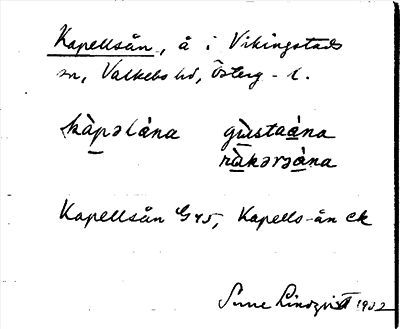 Kapellsån, å i Vikingstads
sn, Valkebo hd, Österg. l.
kàpəlána gùstaána
ràkərəána
Kapellsån G 45, Kapells-ån ek
Sune Lindqvist 1932